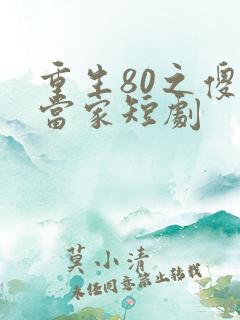 重生80之傻
當家短劇
莫小清
未经同意禁止转载